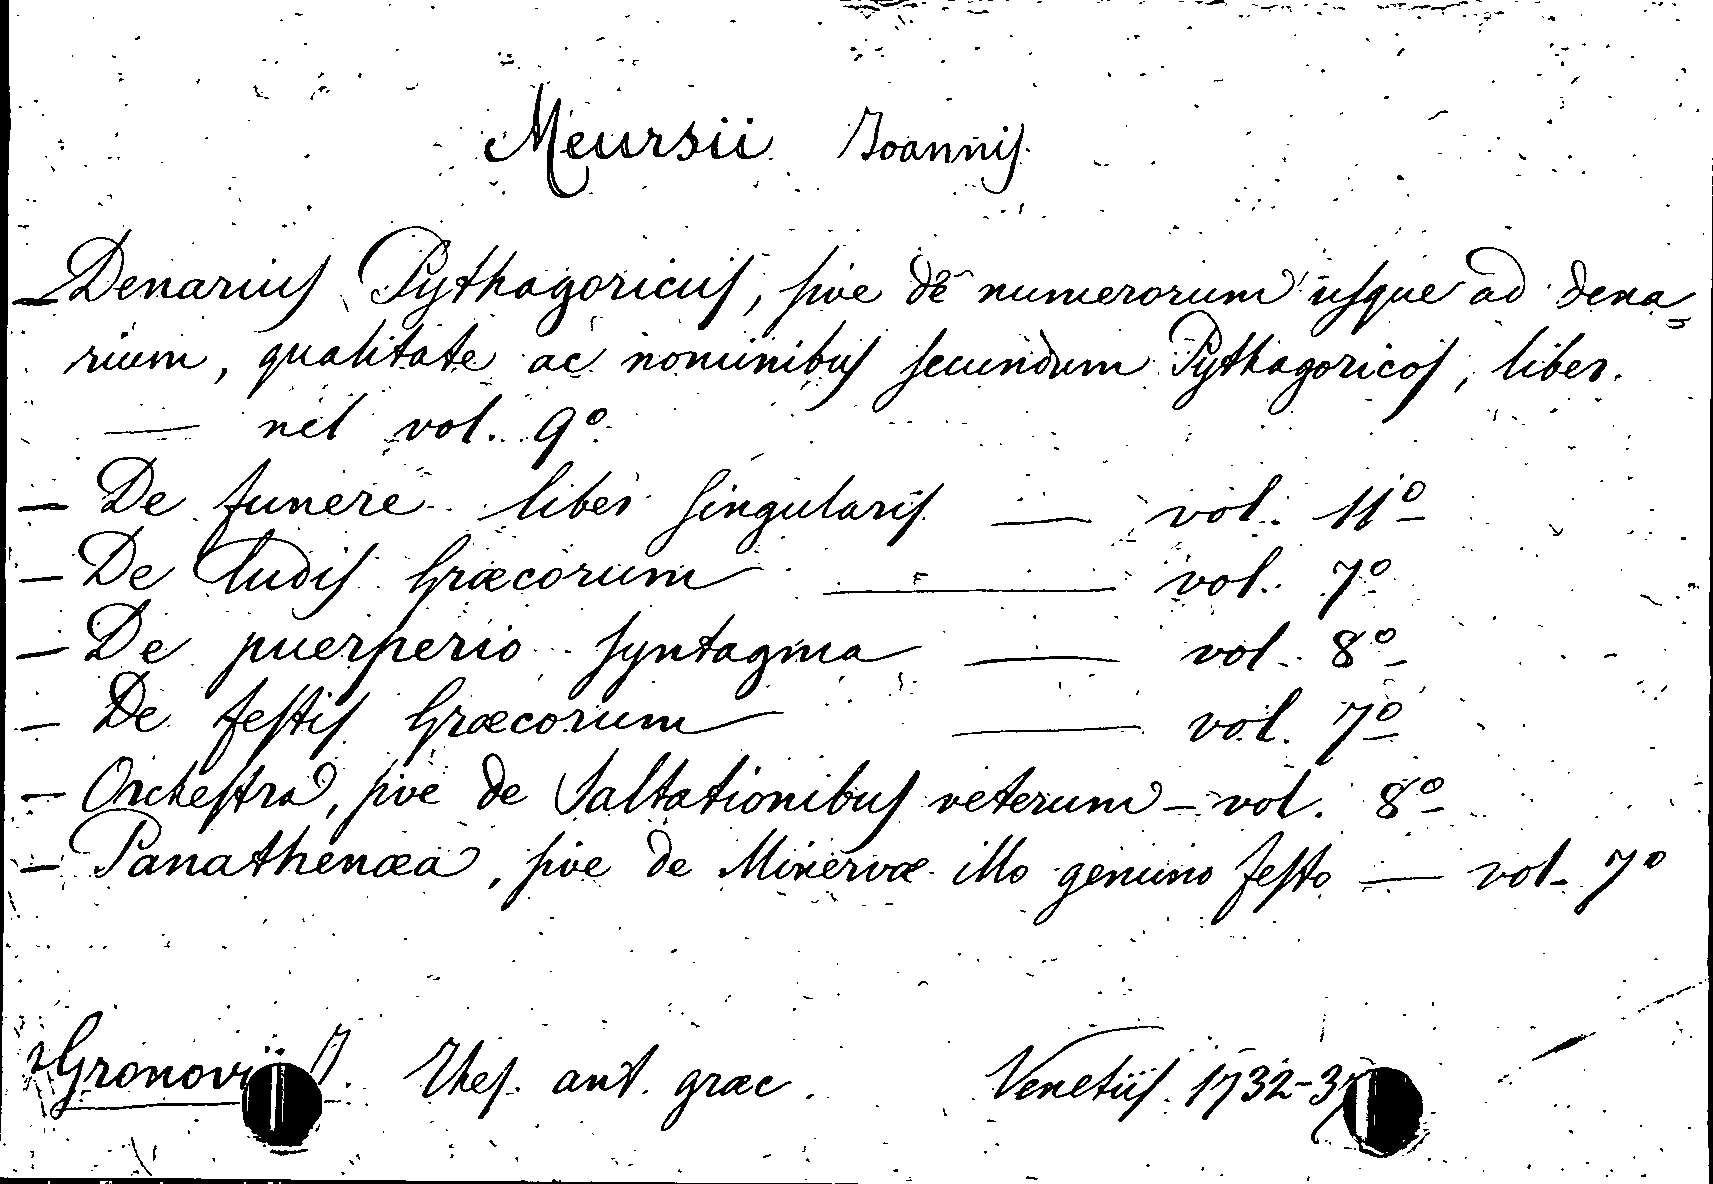 Meursii Joannis
- Denarius Pythagoricus, sive de numerorum usque ad dena=
rium, qualitate ac nominibus secundum Pythagoricos, liber.
— nel vol. 9º
- De funere liber singularis — vol. 11º
- De ludis Græcorum — vol. 7º
- De puerperio syntagma — vol. 8º
- De festis Græcorum — vol. 7º
- Orchestra, sive de Saltationibus veterum - vol. 8º
- Panathenæa, sive de Minervæ illo genuino festo — vol. 7º
Gronovii J. Thes. ant. græc. Venetiis. 1732-37